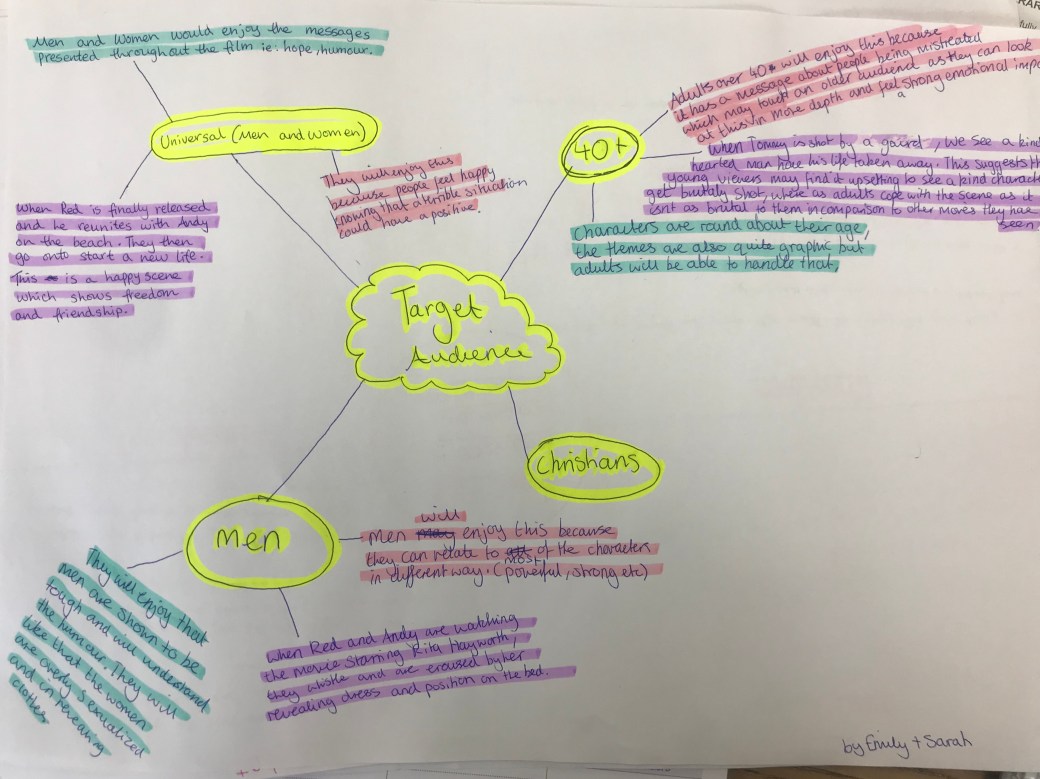 Men and Women would enjoy the messages
presented throughout the film ie: hope, humour.
Universal (Men and Women)
They will enjoy this
because people feel happy
knowing that a terrible situation
could have a positive.
When Red is finally released
and he reunites with Andy
on the beach. They then
go onto start a new life.
This is a happy scene
which shows freedom
and friendship.
40+
Adults over 40+ will enjoy this because
it has a message about people being mistreated
which may touch an older audiend as they can look
at this in more depth and feel a strong emotional
When Tommy is shot by a gaurd, we see a kind
hearted man have his life taken away. This suggests
young viewers may find it upsetting to see a kind
get brutaly shot, where as adults cope with the scene as it
isnt as brutal to them in comparison to other moves they have
seen.
Characters are round about their age,
the themes are also quite graphic but
adults will be able to handle that,
Target
Audience
Christians
Men
will
Men may enjoy this because
they can relate to all of the characters
most
in different way. (powerful, strong etc)
They will enjoy that
men are shown to be
tough and will understand
the humour. They will
like that the women
are overly sexualized
and in revealing
clothes
When Red and Andy are watching
the movie starring Rita Hayworth,
they whistle and are eroused by her
revealing dress and position on the bed.
by Emily + Sarah